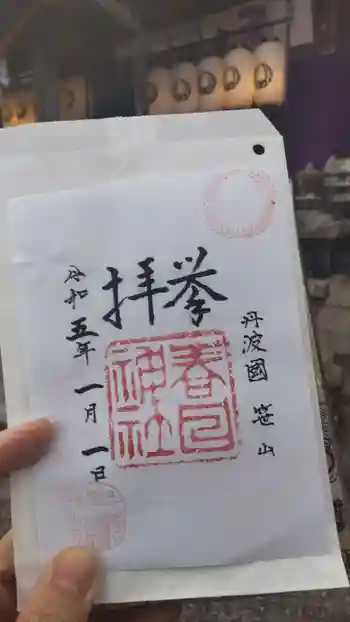 丹波國 笹山
奉拝
春日
神社
令和五年 一月 一日